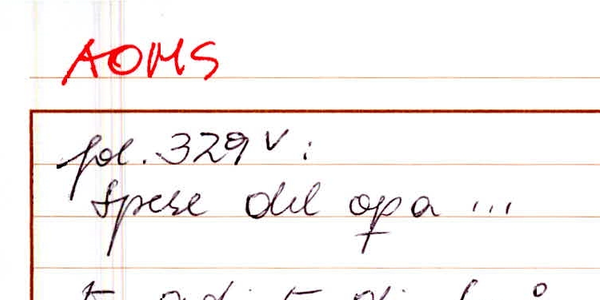 AOMS
fol. 329v:
Spese del opa ...